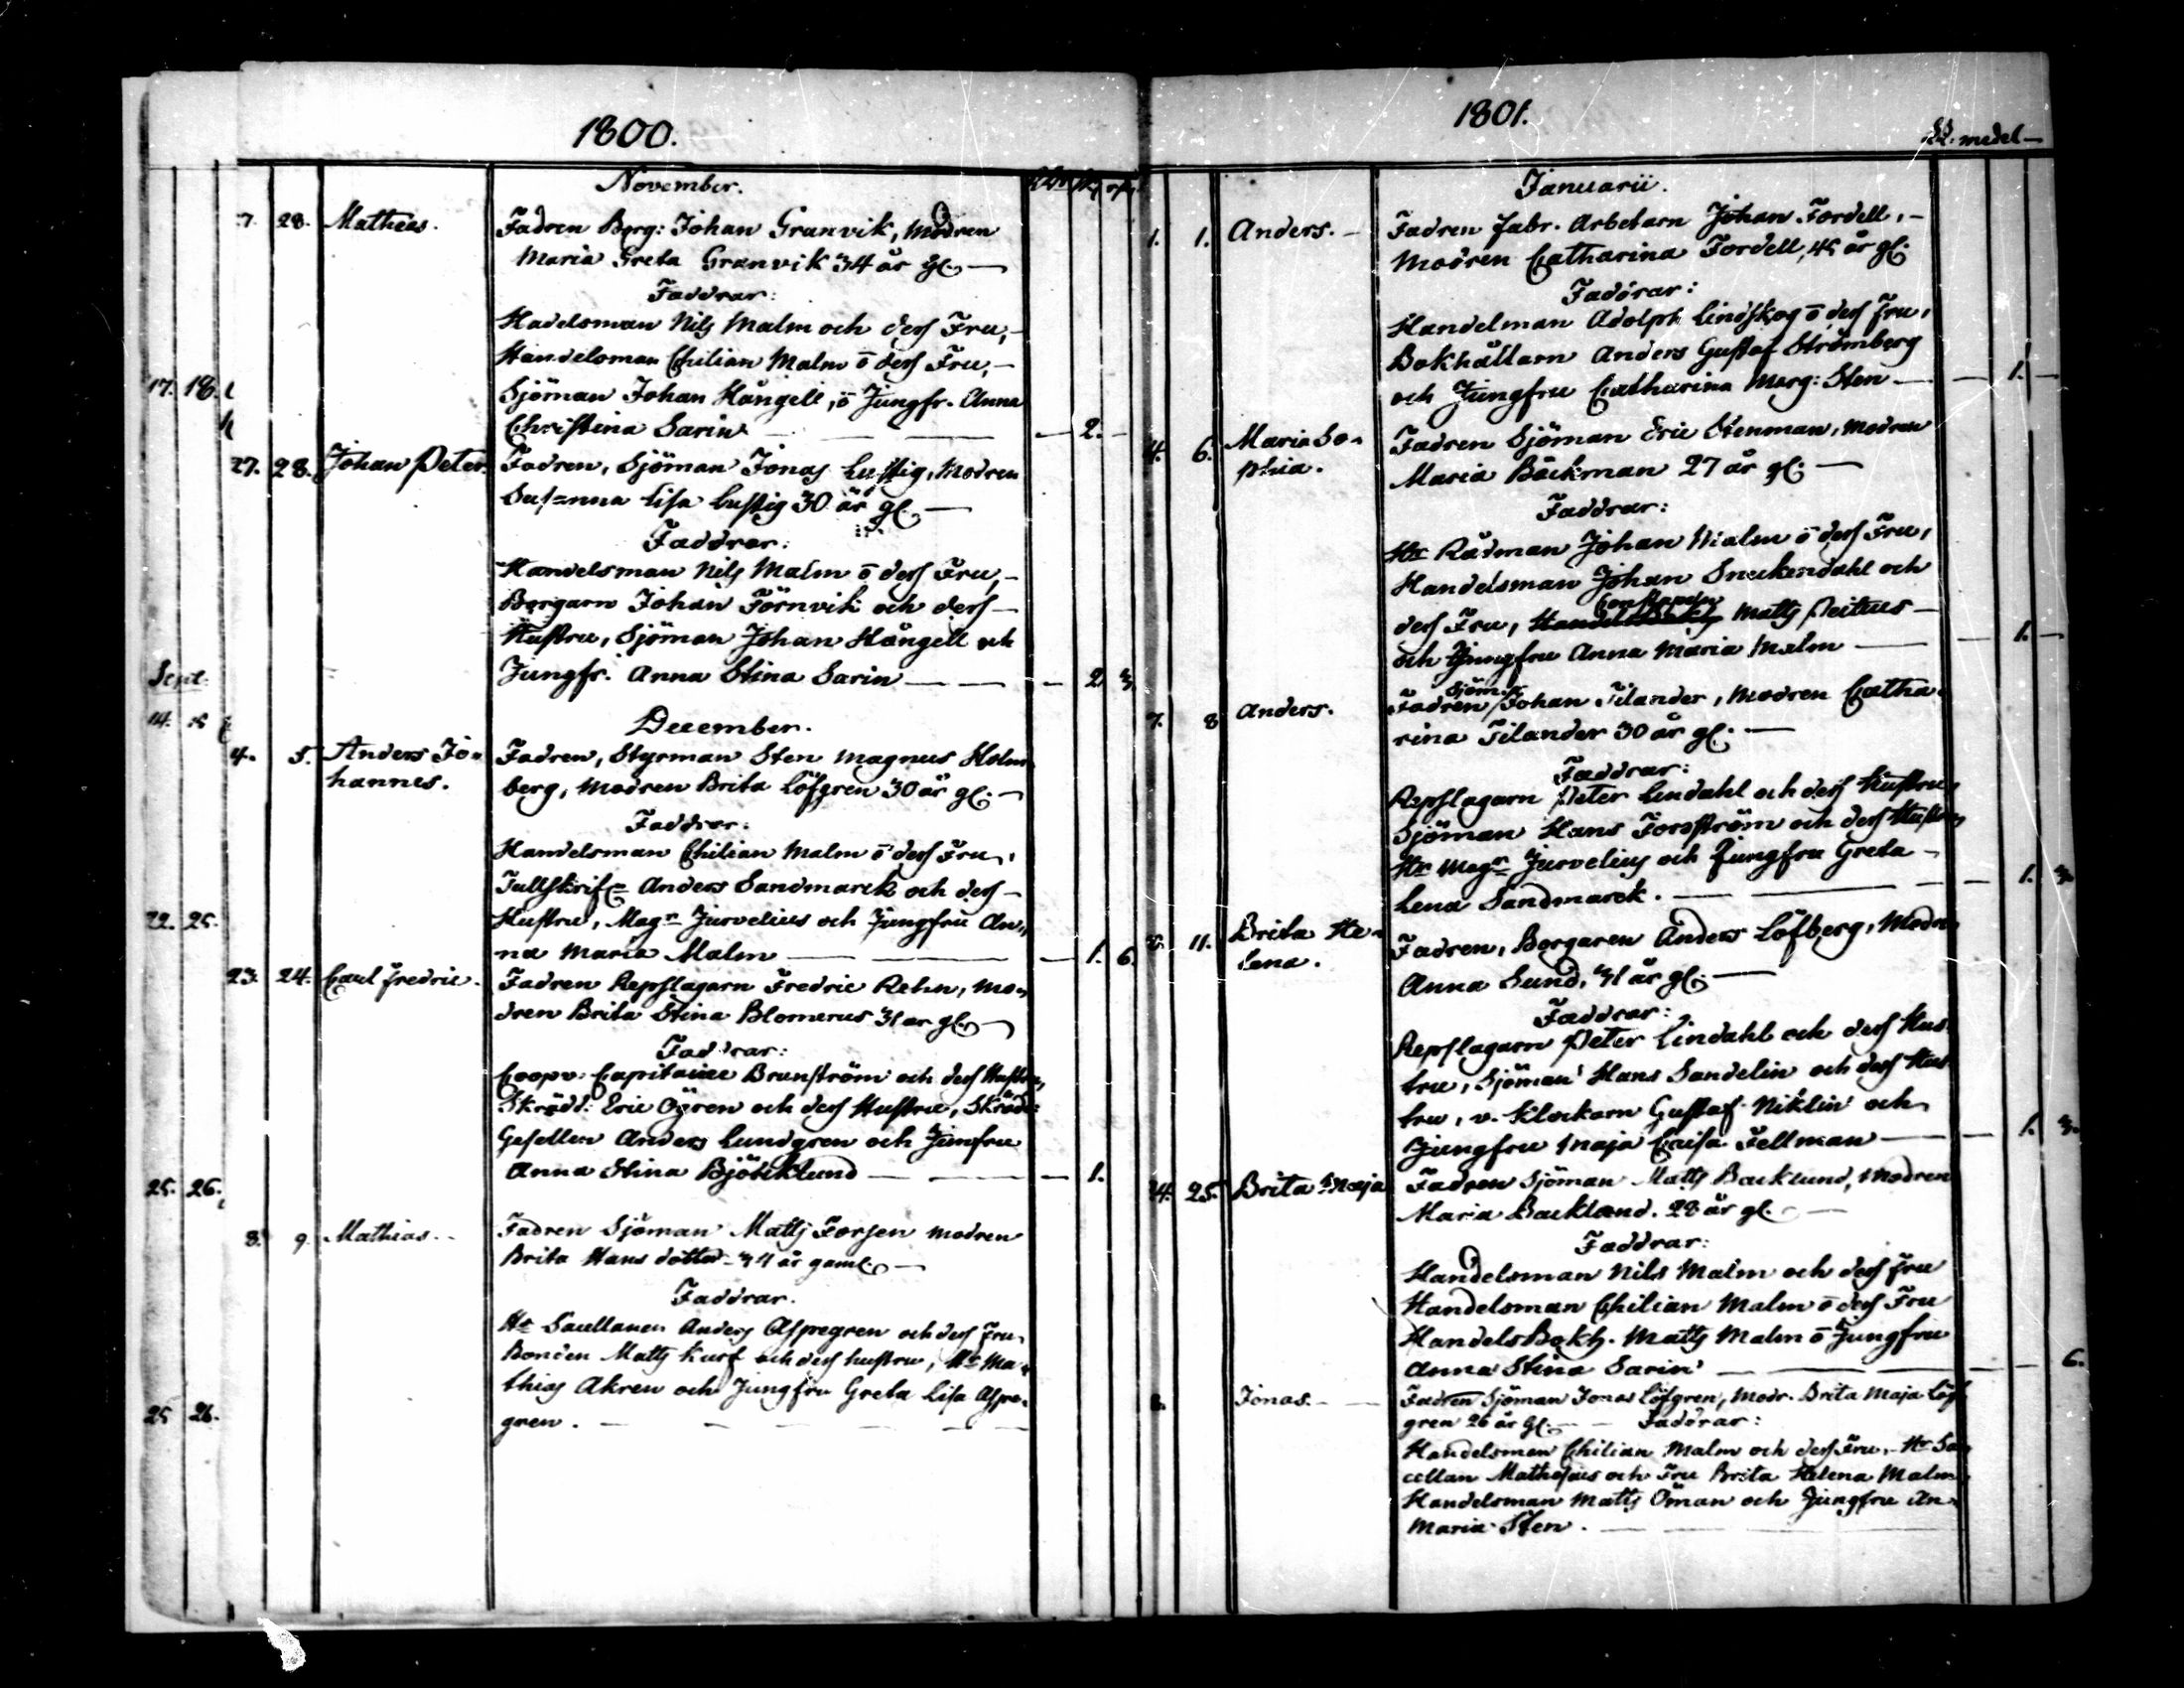 1800.
November.
7. 28. Mathias. Fadren Borg: Johan Granvik, Modren
Maria Greta Granvik 34 år gl.
Faddrar:
Hadelsman Nils Malm och dess Fru,
Handelsman Chilian Malm ō dess Fru,
17. 18. Sjöman Johan Hångell, ō Jungfr. Anna
Christina Sarin 2.
27. 28. Johan Peter. Fadren, Sjöman Jonas Lustig, Modren
Susanna Lisa Lustig 30 år gl.
Faddrar:
Handelsman Nils Malm ō dess Fru,
Borgarn Johan Törnvik och dess
Hustru, Sjöman Johan Hångell och
Sept. Jungfr. Anna Stina Sarin 2
14. December.
4. 5. Anders Jo= Fadren, Styrman Sten Magnus Holm
hannes. berg, Modren Brita Löfgren 30 år gl.
Faddrar:
Handelsman Chilian Malm ō dess Fru,
Tullskrifr Anders Sandmarck och dess
22. 25. Hustru, Magr Jurvelius och Jungfru An,,
na Maria Malm 1. 6.
23. 24. Carl Fredric. Fadren Repslagarn Fredric Rehn, Mo,,
dren Brita Stina Blomerus 31 år gl.
Faddrar:
Coopv: Capitaine Brunström och dess Hustru,
Skrädd: Eric Ögren och dess Hustru, Skrädd:
Gesellen Anders Lundgren och Jumfru
25. 26. Anna Stina Björklund 1.
8. 9. Mathias. Fadren Sjöman Matts Forssen Modren
Brita Hans dotter 34 år gaml.
Faddrar.
Hr Sacellanen Anders Aspegren och dess Fru,
Bonden Matts Kurf och dess hustru, Hr Ma,,
thias Akren och Jungfru Greta Lisa Aspe,,
25 26. gren.
1801.
medel
Januarii.
1. 1. Anders. Fadren fabr. Arbetarn Johan Fordell,
Modren Catharina Fordell, 45 år gl.
Faddrar:
Handelman Adolph Lindskog ō dess Fru,
Bokhållarn Anders Gustaf Strömberg
och Jungfru Catharina Marg: Sten 1.
4. 6. Maria So= Fadren Sjöman Eric Stenman, Modren
phia. Maria Bäckman 27 år gl.
Faddrar:
Hr Rådman Johan Malm ō dess Fru,
Handelsman Johan Snickendahl och
dess Fru, Matts
och Jungfru Anna Maria Malm 1.
7. 8 Anders. Fadren Sjöm. Johan Tilander, Modren Catha
rina Tilander 30 år gl.
Faddrar:
Repslagarn Peter Lindahl och dess Hustru,
Sjöman Hans Forsström och dess Hustru
Hr Magr Jurvelius och Jungfru Greta
Lena Sandmarck. 1.
8. 11. Brita He= Fadren, Borgaren Anders Löfberg, Modren
lena. Anna Sund, 31 år gl.
Faddrar:
Repslagarn Peter Lindahl och dess Hus
tru, Sjöman Hans Sandelin och dess Hus
tru, v. Klockarn Gustaf Niklin och
Jungfru Maja Caisa Fellman 1.
24. 25. Brita Maja Fadren Sjöman Matts Backlund, Modren
Maria Backlund. 28 år gl.
Faddrar:
Handelsman Nils Malm och dess Fru
Handelsman Chilian Malm ō dess Fru
HandelsBokh. Matts Malm ō Jungfru
Anna Stina Sarin 6.
Jonas. Fadren Sjöman Jonas Löfgren, Modr. Brita Maja Löf
gren 26 år gl. Faddrar:
Handelsman Chilian Malm och dess Fru, Hr Sa
cellan Mathesius och Fru Brita Helena Malm
Handelsman Matts Öman och Jungfru An
Maria Sten.